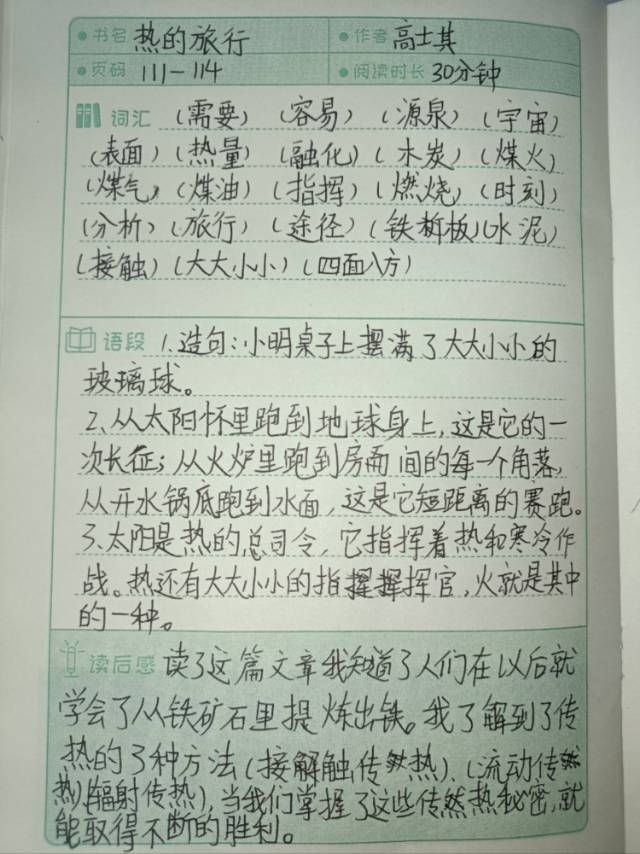 书名 热的旅行 作者 高士其
页码 111-114 阅读时长 30分钟
词汇 (需要) (容易) (源泉) (宇宙)
(表面) (热量) (融化) (木炭) (煤火)
(煤气) (煤油) (指挥) (燃烧) (时刻)
(分析) (旅行) (途径) (铁板) (水泥)
(接触) (大大小小) (四面八方)
语段 1.造句:小明桌子上摆满了大大小小的
玻璃球。
2、从太阳怀里跑到地球身上,这是它的一
次长征;从火炉里跑到房间的每一个角落,
从开水锅底跑到水面,这是它短距离的赛跑。
3、太阳是热的总司令,它指挥着热和寒冷作
战。热还有大大小小的指挥官,火就是其中
的一种。
读后感 读了这篇文章我知道了人们在以后就
学会了从铁矿石里提炼出铁。我了解到了传
热的3种方法(接触传热)、(流动传
热)(辐射传热),当我们掌握了这些传热秘密,就
能取得不断的胜利。